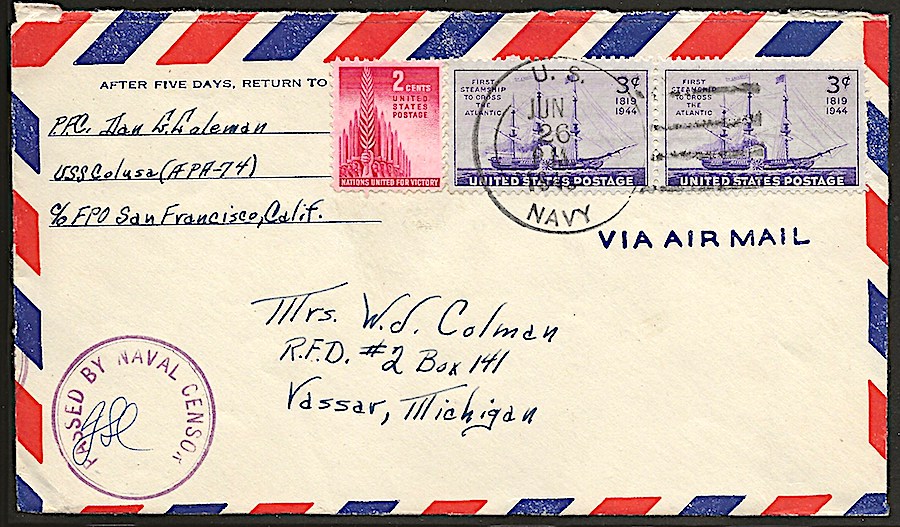 AFTER FIVE DAYS, RETURN TO
PFC. Dan G. Coleman
USS Colusa (APA-74)
c/o FPO San Francisco, Calif.
2 CENTS
UNITED
STATES
POSTAGE
NATIONS UNITED FOR VICTORY
FIRST
STEAMSHIP
TO CROSS
THE
ATLANTIC
3¢
1819
1944
UNITED STATES POSTAGE
FIRST
STEAMSHIP
TO CROSS
THE
ATLANTIC
3¢
1819
1944
UNITED STATES POSTAGE
U. S.
JUN
26
NAVY
VIA AIR MAIL
Mrs. W.J. Colman
R.F.D. #2 Box 141
Vassar, Michigan
PASSED BY NAVAL CENSOR